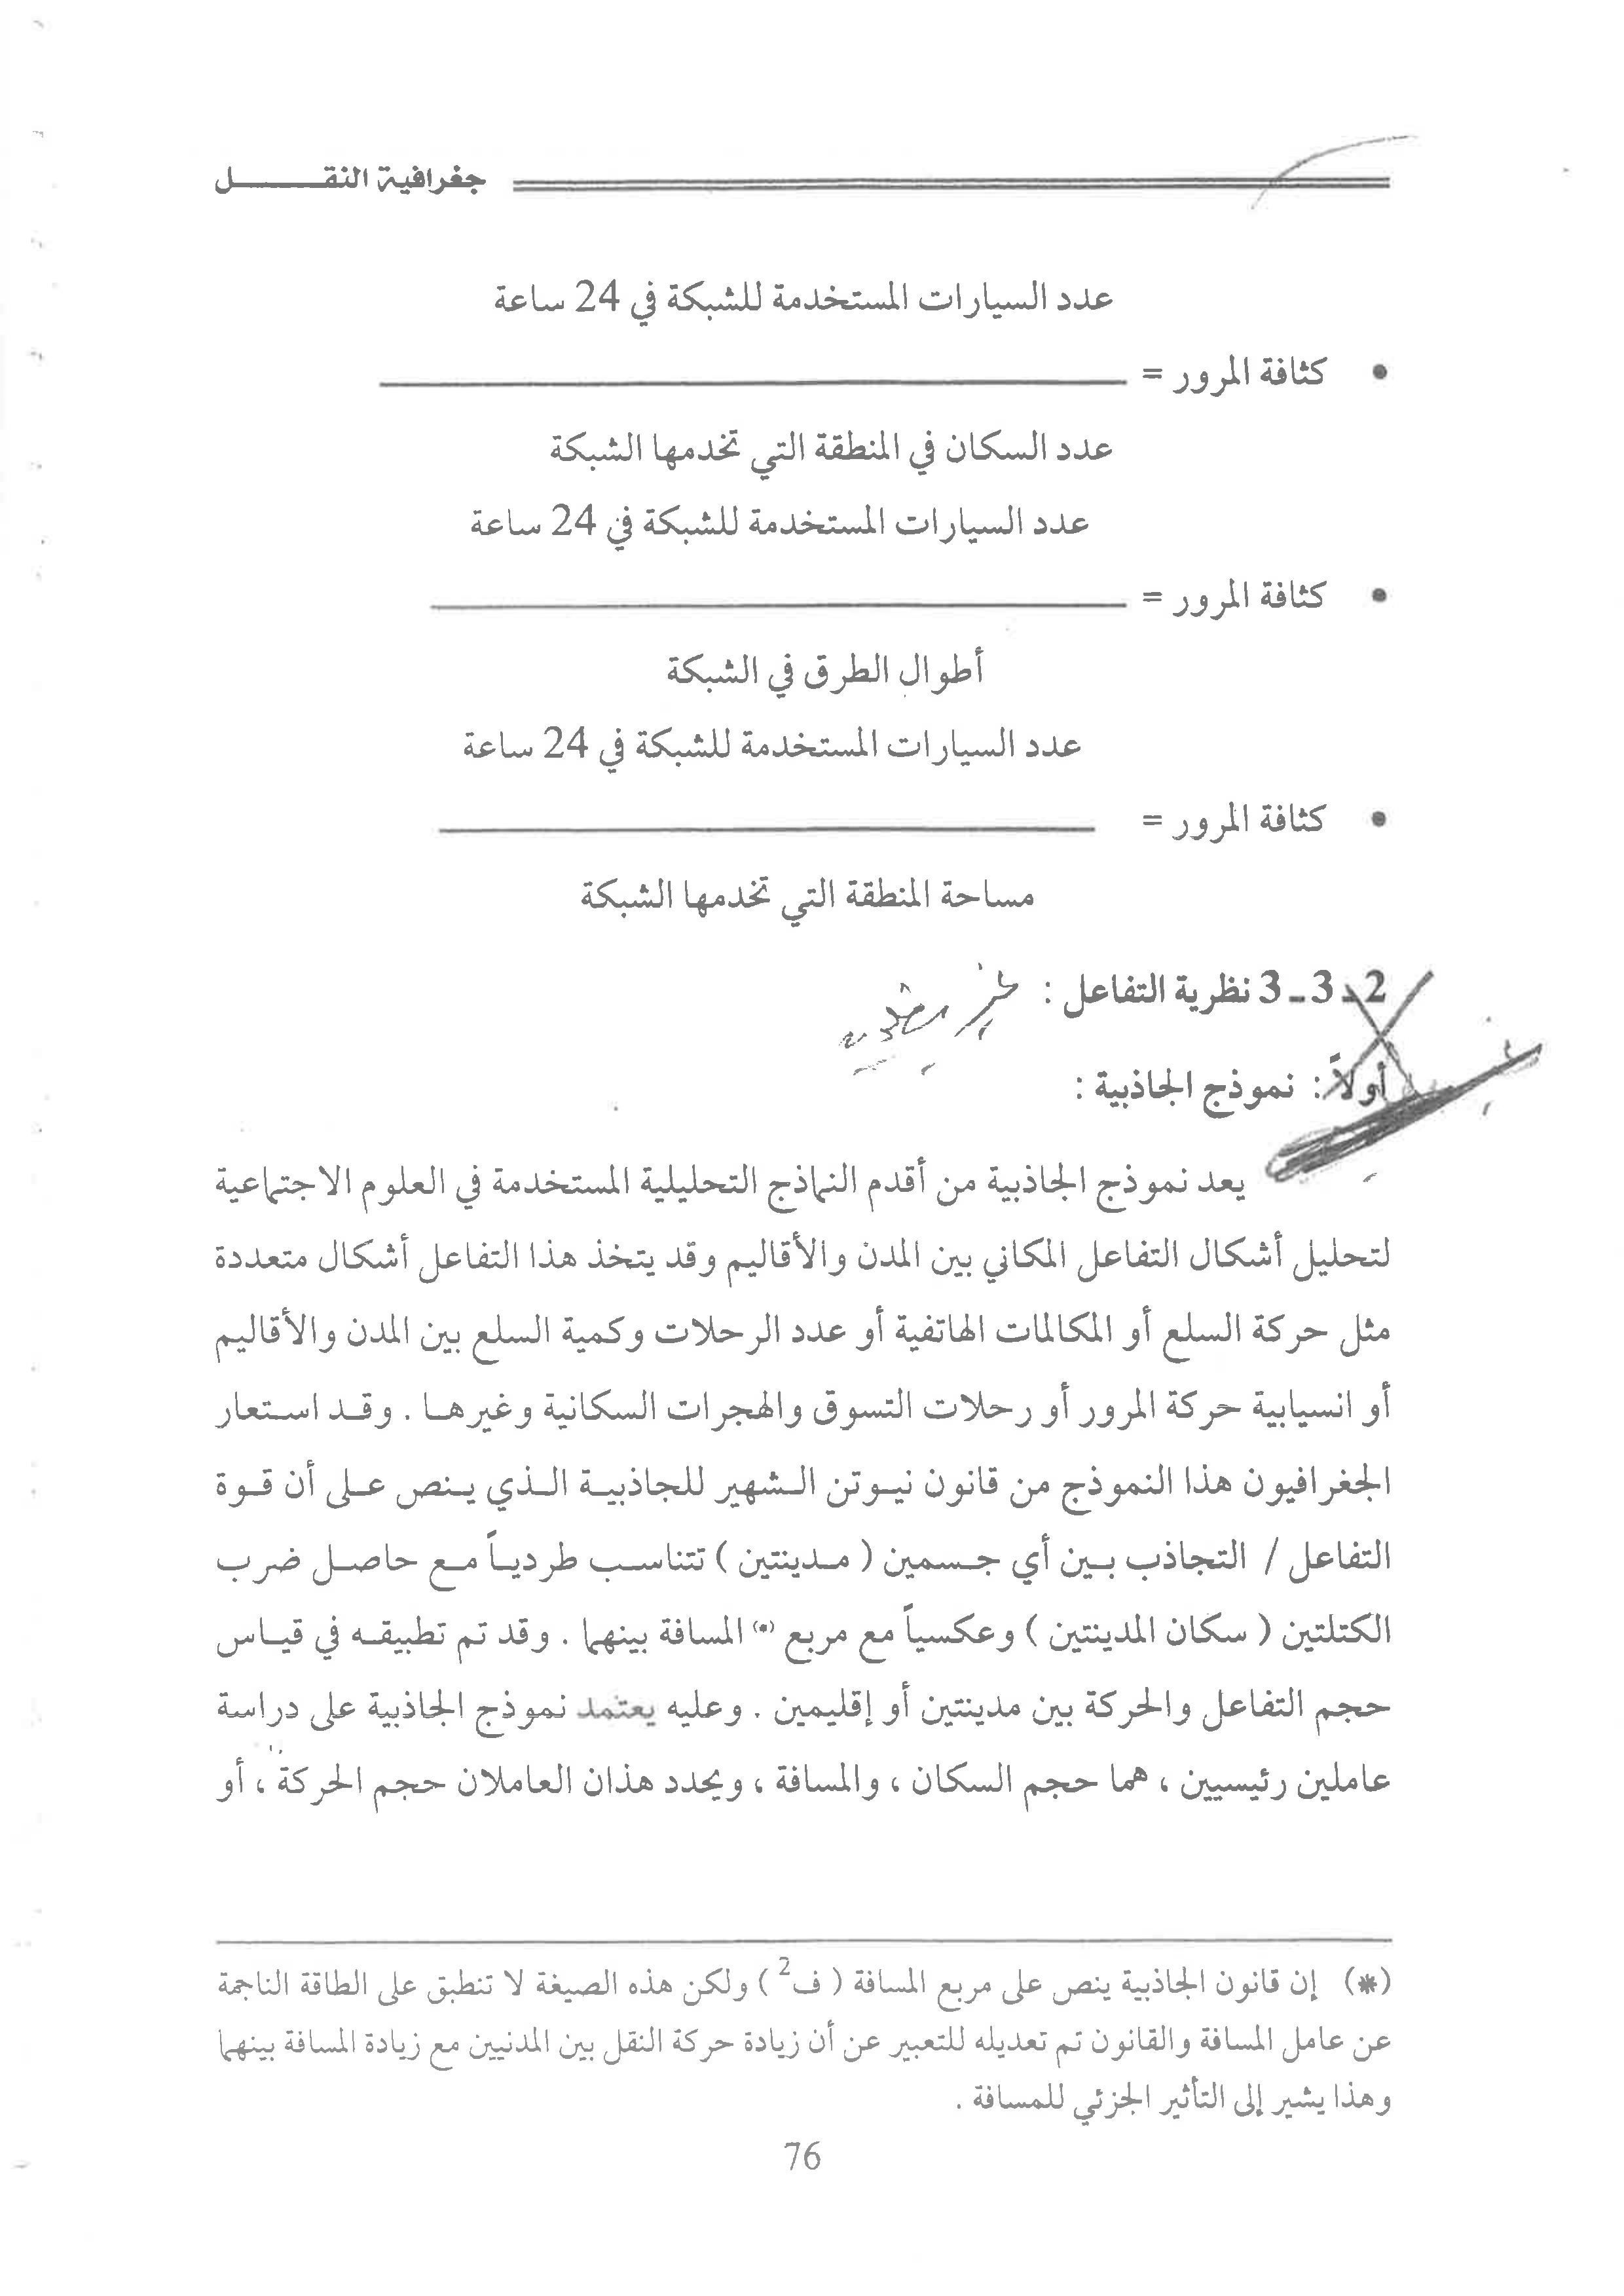 جغرافية النقـــــــل
عدد السيارات المستخدمة للشبكة في 24 ساعة
• كثافة المرور =
عدد السكان في المنطقة التي تخدمها الشبكة
عدد السيارات المستخدمة للشبكة في 24 ساعة
• كثافة المرور =
أطوال الطرق في الشبكة
عدد السيارات المستخدمة للشبكة في 24 ساعة
• كثافة المرور =
مساحة المنطقة التي تخدمها الشبكة
2 ـ 3 ـ 3 نظرية التفاعل :
أولاً : نموذج الجاذبية :
يعد نموذج الجاذبية من أقدم النماذج التحليلية المستخدمة في العلوم الاجتماعية
لتحليل أشكال التفاعل المكاني بين المدن والأقاليم وقد يتخذ هذا التفاعل أشكال متعددة
مثل حركة السلع أو المكالمات الهاتفية أو عدد الرحلات وكمية السلع بين المدن والأقاليم
أو انسيابية حركة المرور أو رحلات التسوق والهجرات السكانية وغيرهـا . وقـد اسـتعار
الجغرافيون هذا النموذج من قانون نيـوتن الـشهير للجاذبيـة الـذي يـنص عـلى أن قـوة
التفاعل / التجاذب بـين أي جـسمين ( مـدينتين ) تتناسـب طرديـاً مـع حاصـل ضرب
الكتلتين ( سكان المدينتين ) وعكسياً مع مربع (*) المسافة بينهما . وقد تم تطبيقـه في قيـاس
حجم التفاعل والحركة بين مدينتين أو إقليمين . وعليه يعتمد نموذج الجاذبية على دراسة
عاملين رئيسيين ، هما حجم السكان ، والمسافة ، ويحدد هذان العاملان حجم الحركة ، أو
(*) إن قانون الجاذبية ينص على مربع المسافة ( ف2 ) ولكن هذه الصيغة لا تنطبق على الطاقة الناجمة
عن عامل المسافة والقانون تم تعديله للتعبير عن أن زيادة حركة النقل بين المدنيين مع زيادة المسافة بينهما
وهذا يشير إلى التأثير الجزئي للمسافة .
76